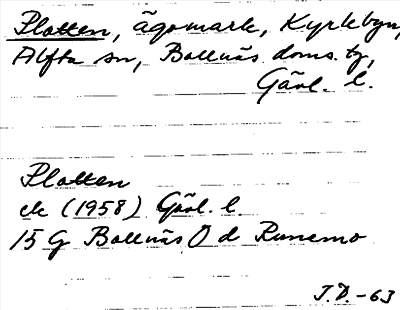 Platten, ägomark, Kyrkbyn,
Alfta sn, Bollnäs doms. tg,
Gävl. l.
Platten
ek (1958) Gävl. l
15 G Bollnäs O d Runemo
J.D.-63